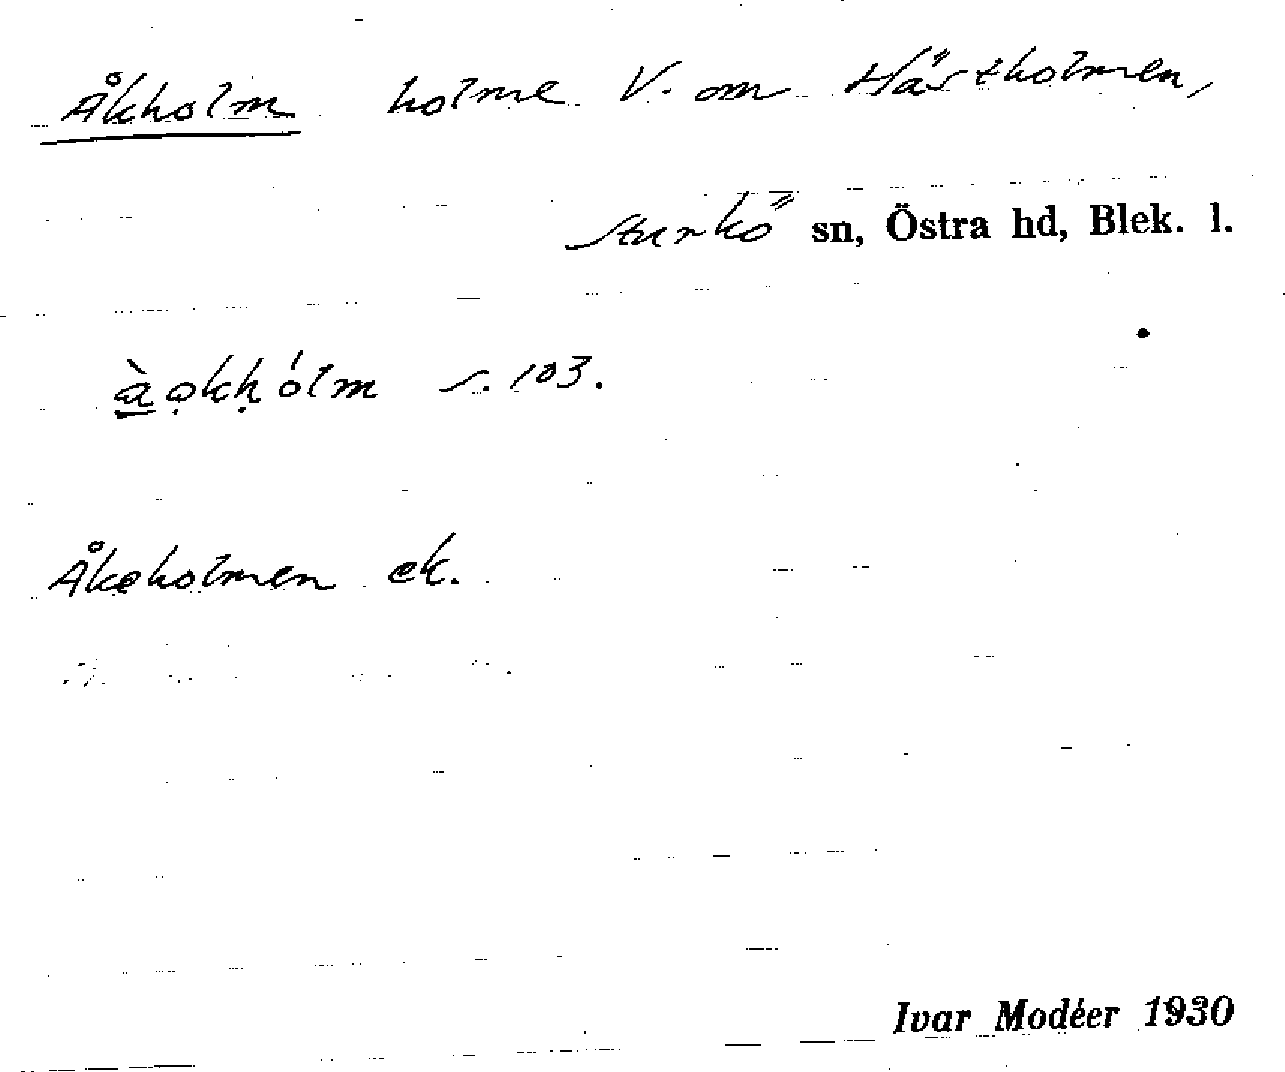 Åkholm holme V. om Hästholmen,
Sturkö sn, Östra hd, Blek. l.
à̲ọkḥólm s. 103.
Åkeholmen ek.
Ivar Modéer 1930